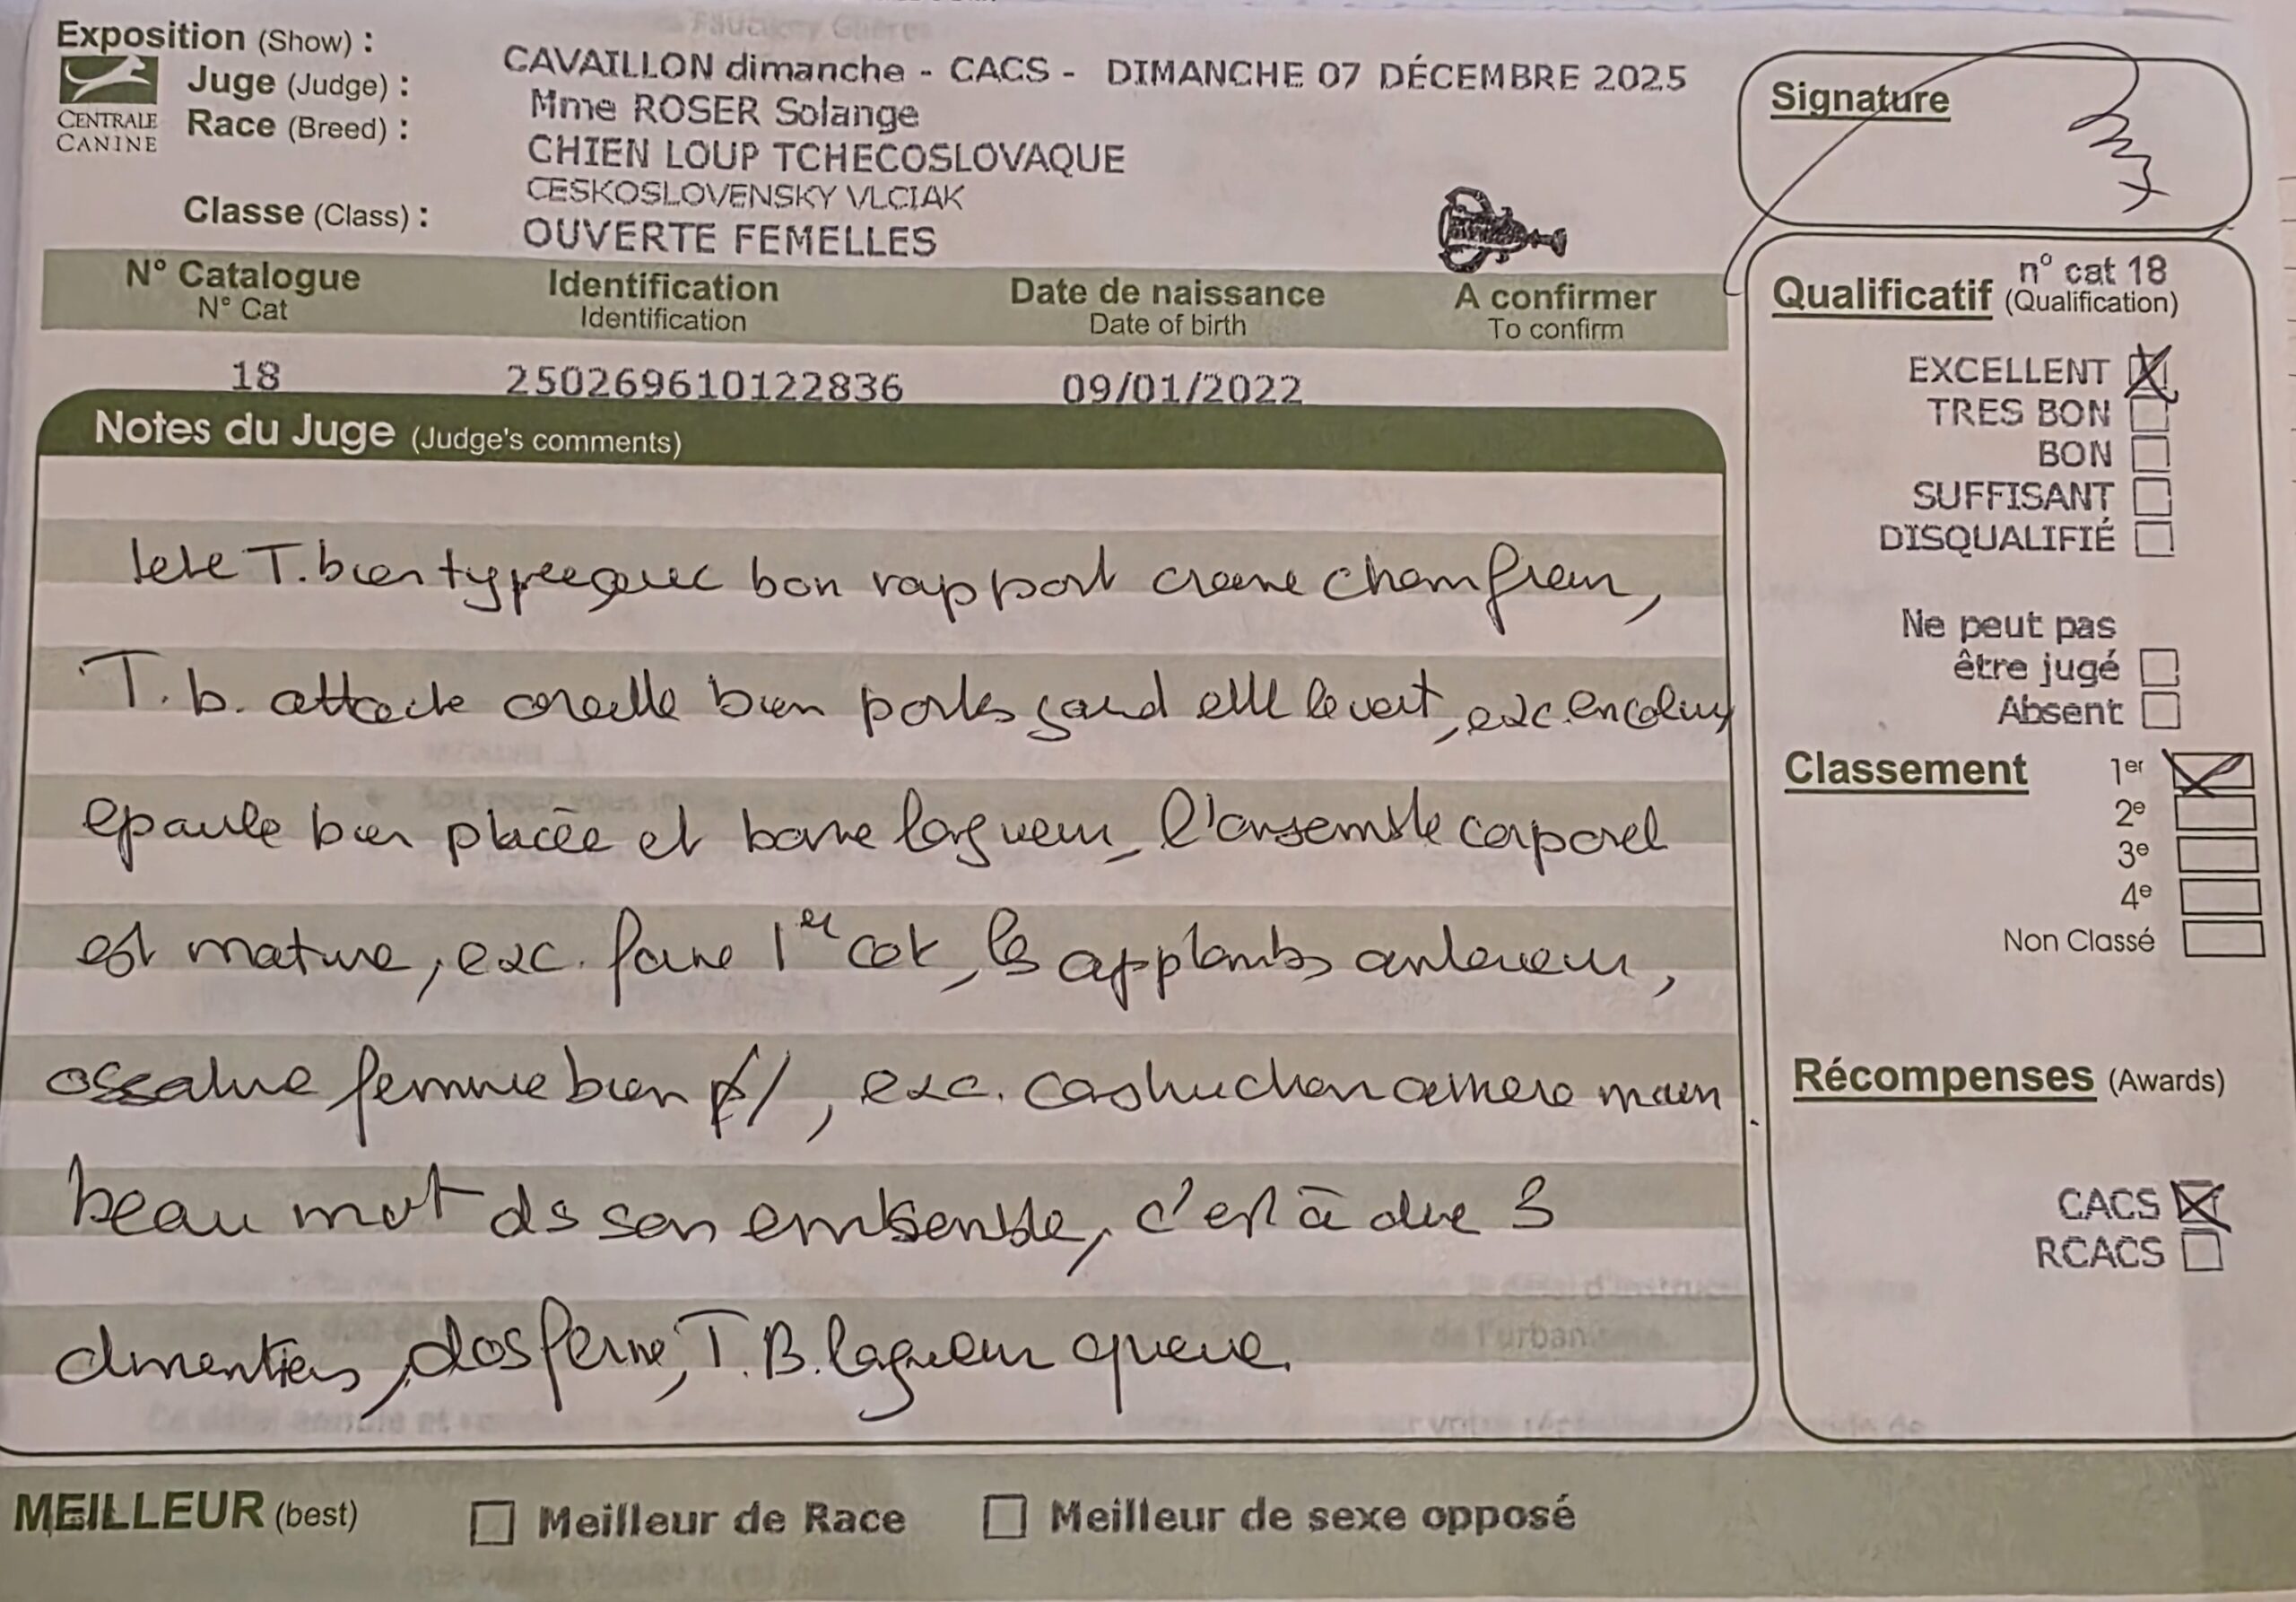 Exposition (Show) :
CAVAILLON dimanche - CACS - DIMANCHE 07 DÉCEMBRE 2025
Juge (Judge) :
Mme ROSER Solange
CENTRALE CANINE
Race (Breed) :
CHIEN LOUP TCHECOSLOVAQUE
CESKOSLOVENSKY VLCIAK
Classe (Class) :
OUVERTE FEMELLES
Signature
N° Catalogue
N° Cat
Identification
Identification
Date de naissance
Date of birth
A confirmer
To confirm
18
250269610122836
09/01/2022
Notes du Juge (Judge's comments)
tete T. bien typee avec bon rapport crane chanfrein,
T. b. attache oreille bien portes quand elle le veut, exc. encolure
epaule bien placée et bonne longueur, l'ensemble corporel
est mature, exc. 1er les applombs anterieur,
ossature bien exc. main
beau mvt ds son ensemble, c'est à dire 3
dimentions, dos ferme, T.B. longueur queue.
n° cat 18
Qualificatif (Qualification)
EXCELLENT
TRES BON
BON
SUFFISANT
DISQUALIFIÉ
Ne peut pas
être jugé
Absent
Classement
1er
2e
3e
4e
Non Classé
Récompenses (Awards)
CACS
RCACS
MEILLEUR (best)
Meilleur de Race
Meilleur de sexe opposé